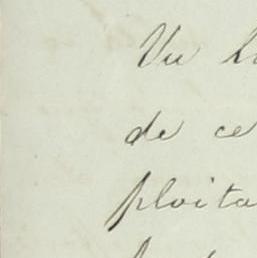 Vu l
de ce
ploita